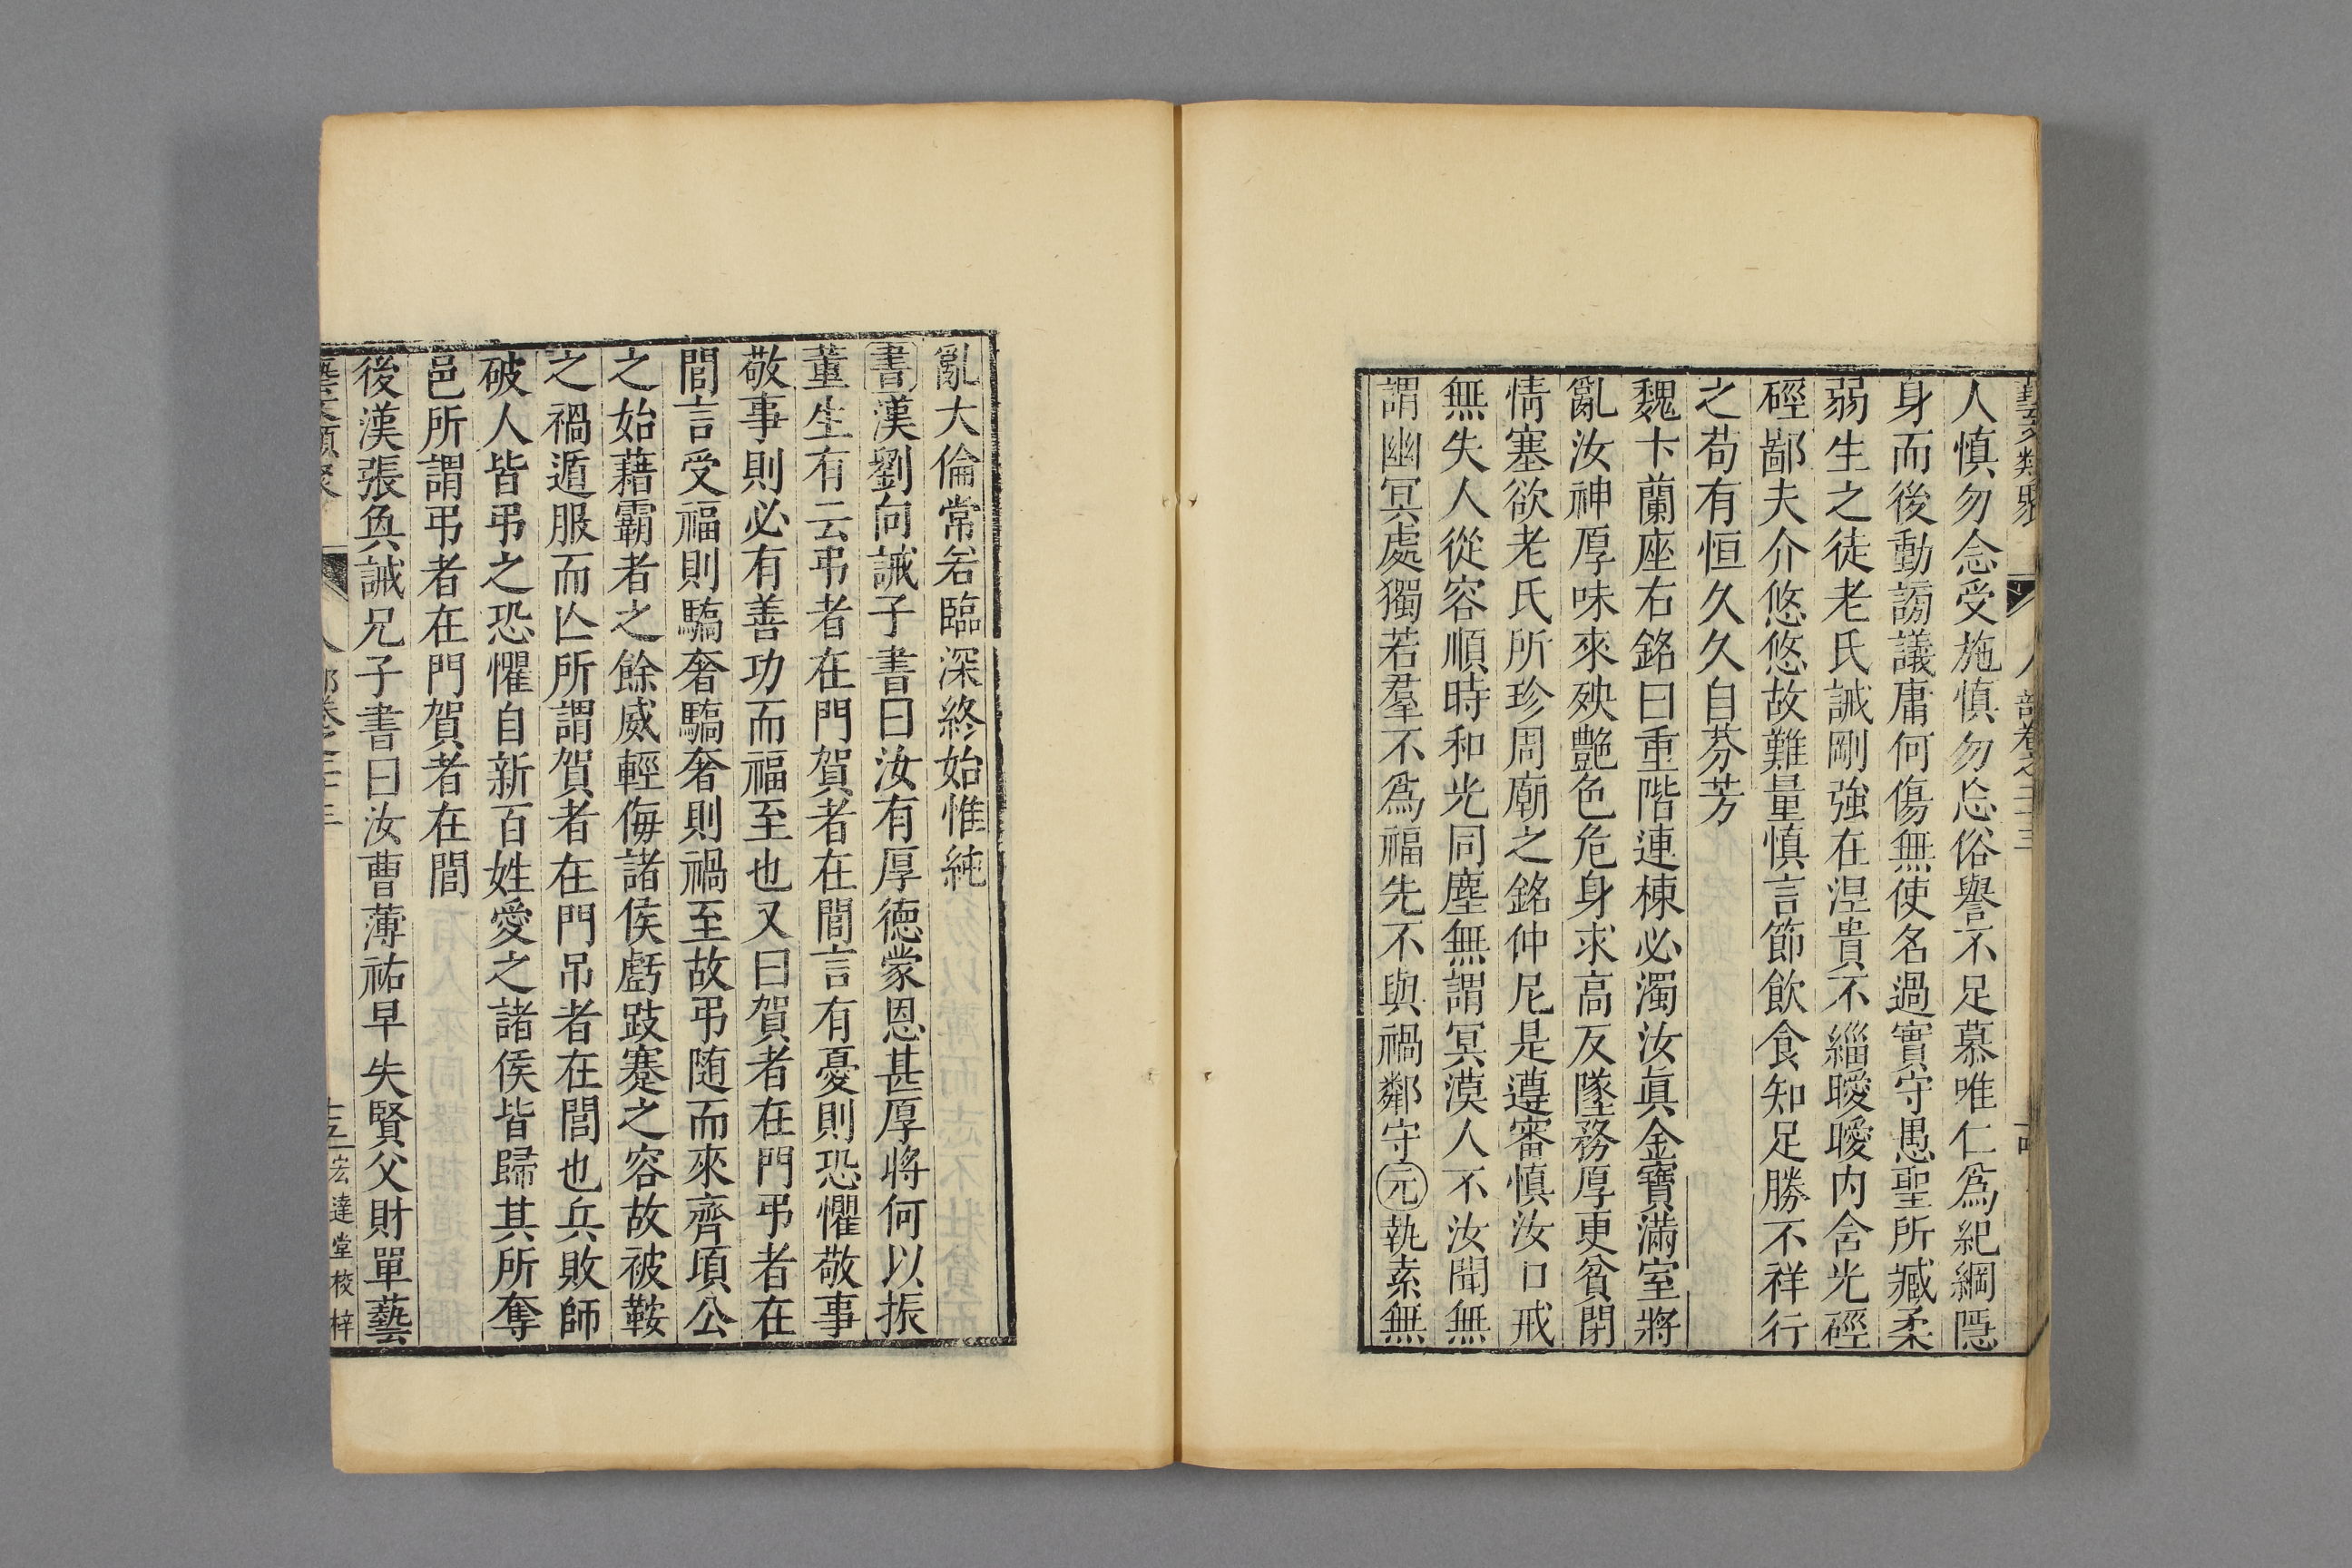 藝文類聚　人部卷之二十三
人慎勿念受施慎勿忘俗譽不足慕唯仁爲紀綱隱
身而後動謗議庸何傷無使名過實守愚聖所臧柔
弱生之徒老氏誡剛強在涅貴不緇曖曖内含光硜
硜鄙夫介悠悠故難量慎言節飲食知足勝不祥行
之苟有恒久久自芬芳
魏卞蘭座右銘曰重階連棟必濁汝眞金寶滿室將
亂汝神厚味來殃艷色危身求高反墜務厚更貧閉
情塞欲老氏所珍周廟之銘仲尼是遵審慎汝口戒
無失人從容順時和光同塵無謂冥漠人不汝聞無
謂幽冥處獨若羣不爲福先不與禍鄰守元執素無
亂大倫常若臨深終始惟純
書漢劉向誡子書曰汝有厚德蒙恩甚厚將何以振
董生有云弔者在門賀者在閭言有憂則恐懼敬事
敬事則必有善功而福至也又曰賀者在門弔者在
閭言受福則驕奢驕奢則禍至故弔随而來齊頃公
之始藉霸者之餘威輕侮諸侯虧跂蹇之容故被鞍
之禍遁服而亾所謂賀者在門吊者在閭也兵敗師
破人皆弔之恐懼自新百姓愛之諸侯皆歸其所奪
邑所謂弔者在門賀者在閭
後漢張奐誡兄子書曰汝曹薄祐早失賢父財單藝
藝文類聚　人部卷之二十三　十五　宏達堂校梓